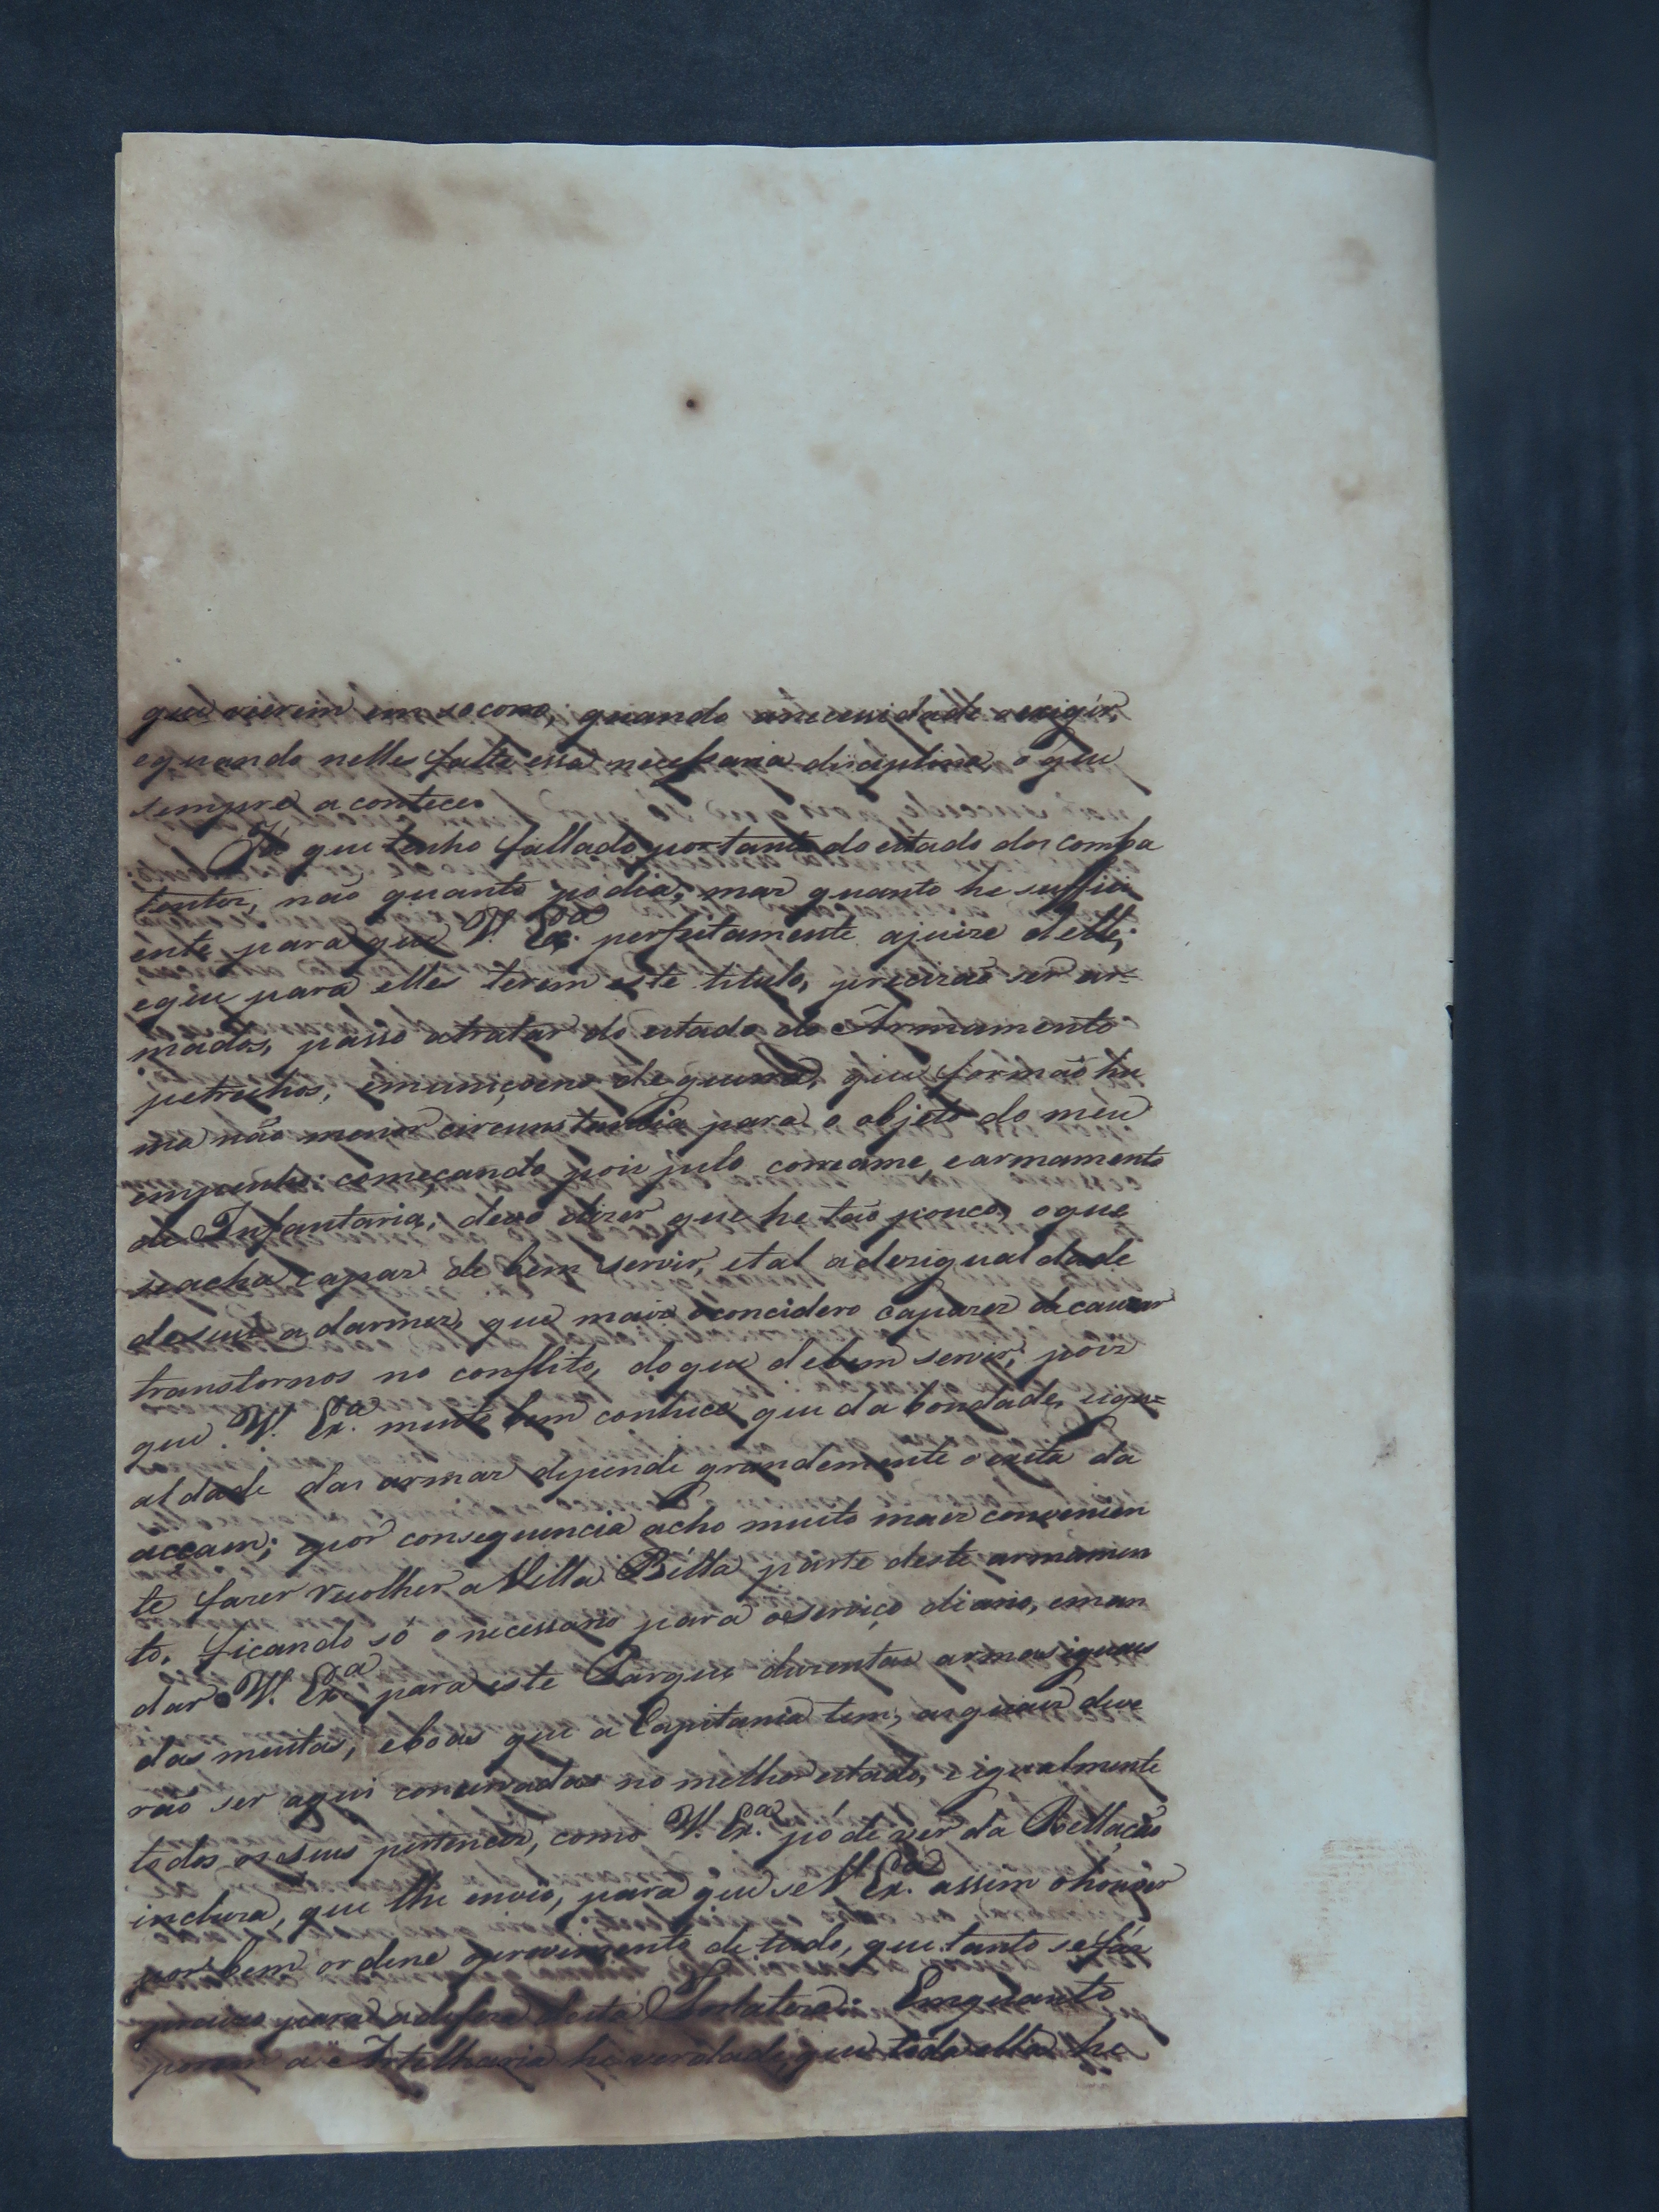 que vierem em socorro, quando anecessidade oexigir,
equando nelles falte essa necessaria disciplina, o que
sempre acontece.
Já que tenho fallado por tanto do estado dos comba
tentes, não quanto podia, mas quanto he suffici
ente para que V. Ex.ª perfeitamente ajuize delle;
eque para elles terem este titulo, precizão ser ar=
mados, passo atratar do estado do Armamento
petrechos, emuniçoens deguerra, que formão hu
ma não menor circunstancia para o objeto do meu
empenho: começando pois pelo correame, earmamento
de Infantaria, devo dizer que he tão pouco, oque
seacha capaz de bem servir, etal adezigualdade
de suas adarmes, que mais oconcidero capazes decauzar
transtornos no conflito, doque debem servir; pois
que V. Ex.ª muito bem conhece que da bondade, eigu=
aldade das armas depende grandemente oexito da
accaen; epor consequencia acho muito mais convenien
te fazer recolher a Villa Bélla parte deste armamen
to, ficando só o necessario para oserviço diario, eman
dar V. Ex.ª para este Parque duzentas armas iguaes
das muitas, eboas que a Capitania tem, asquaes deve
rão ser aqui conservadas no melhor estado, e igualmente
todos os seus pertences, como V. Ex.ª póde ver da Rellação
incluza, que lhe envio, para que se V. Ex.ª assim ohouver
por bem ordene oprovimento de tudo, que tanto sefáz
precizo para adefeza desta Fronteira. Emquanto
porem a Artelharia he verdade, que toda ella he